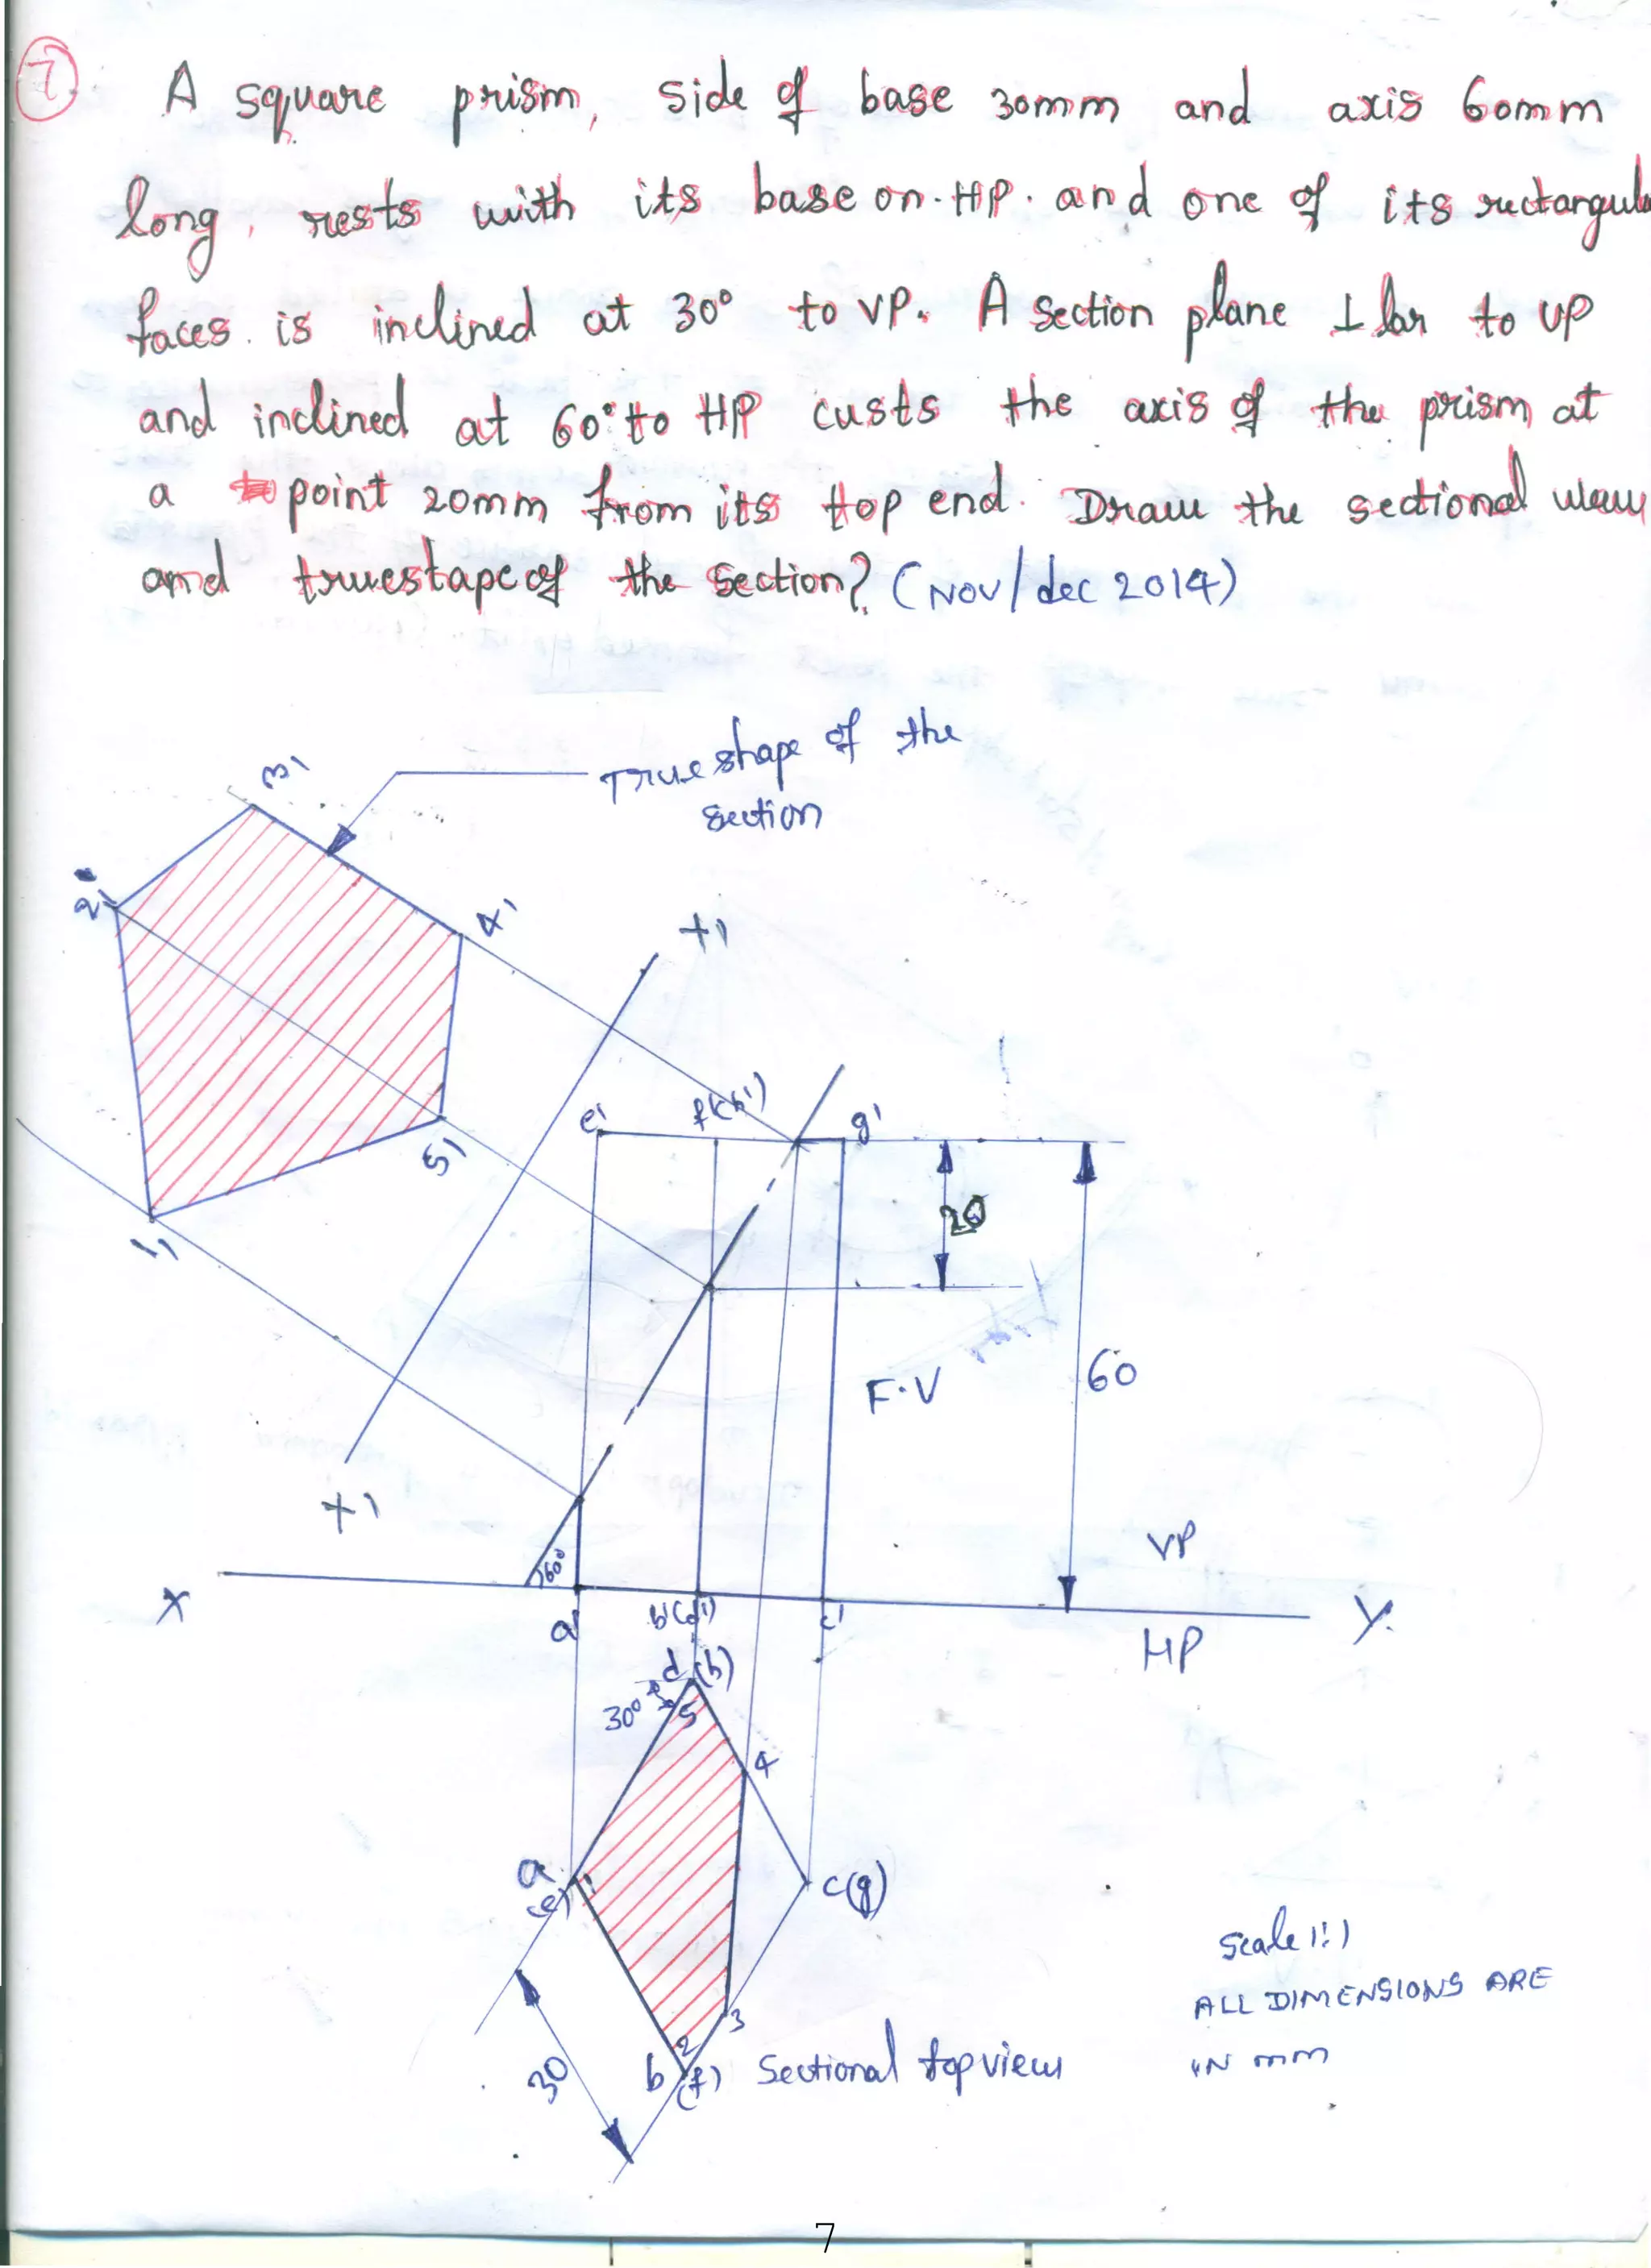 7
A square prism, side of base 30mm and axis 60mm
long, rests with its base on HP. and one of its rectangula
faces. is inclined at 30° to VP. A section plane ⊥lar to VP
and inclined at 60° to HP custs the axis of the prism at
a point 20mm from its top end. Draw the sectional view
and truestape of the section? (Nov/dec 2014)
True shape of the
section
3'
2'
4'
x1
e'
g'
5'
1'
20
F.V
60
x1
60°
VP
X
a'
b'(d')
c'
Y
HP
d (h)
30°
5
4
a
(e)
1
c(g)
3
2
30
b
(f)
Sectional top view
Scale 1:1
ALL DIMENSIONS ARE
IN mm
7